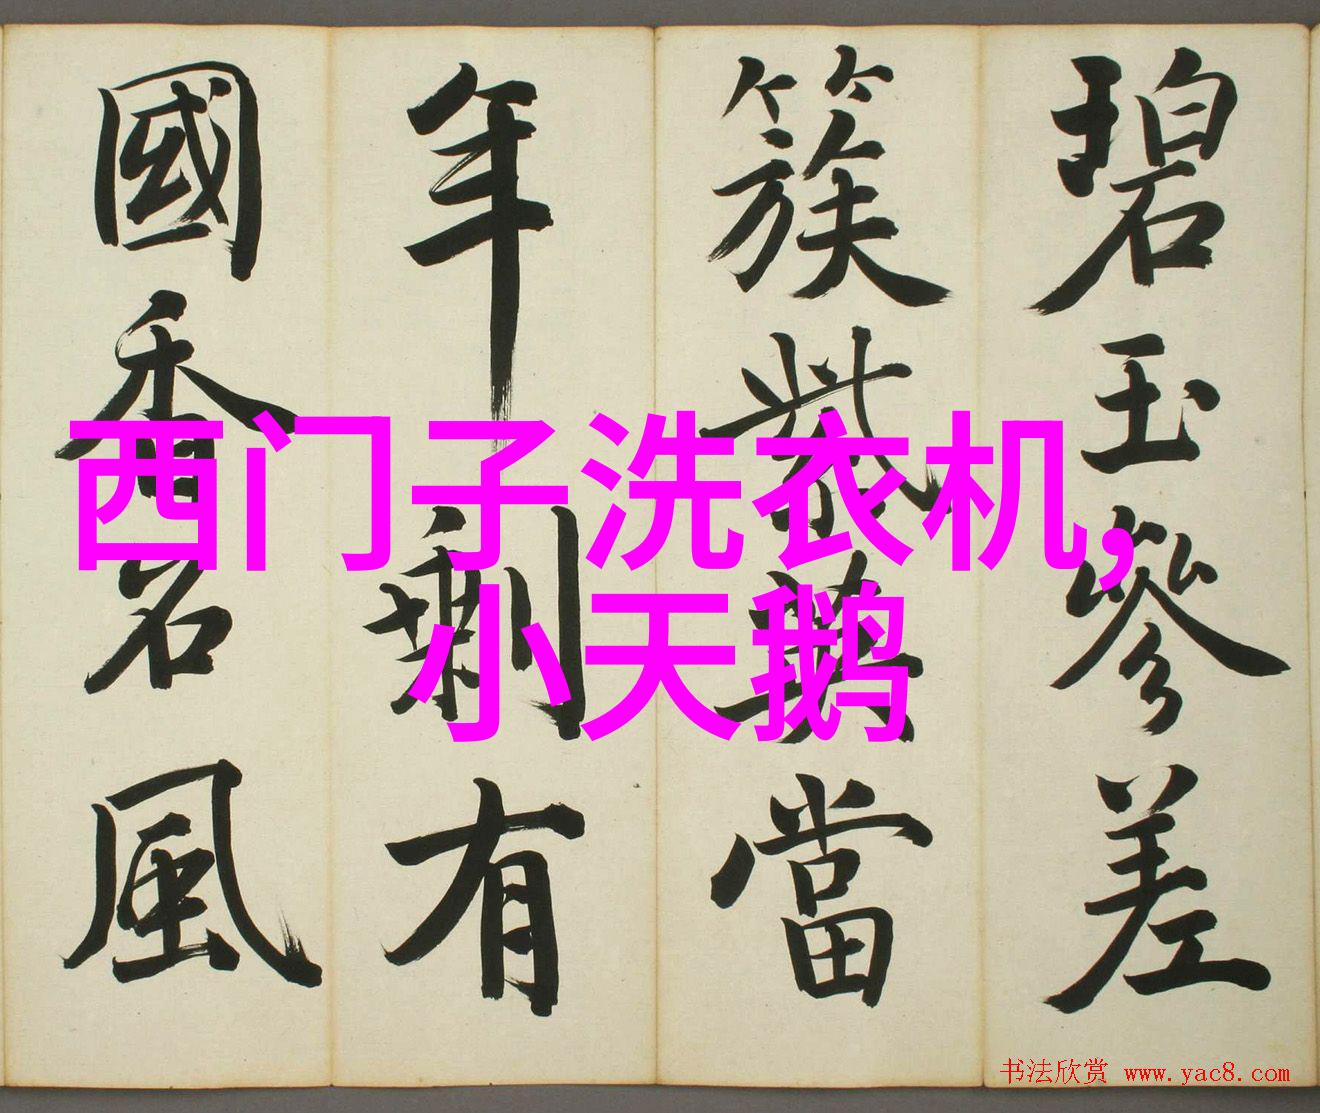 碧玉參差
簇紫英當
年剩有
國香名風
西门子洗衣机,
小天鹅
书法欣赏 www.yac8.com